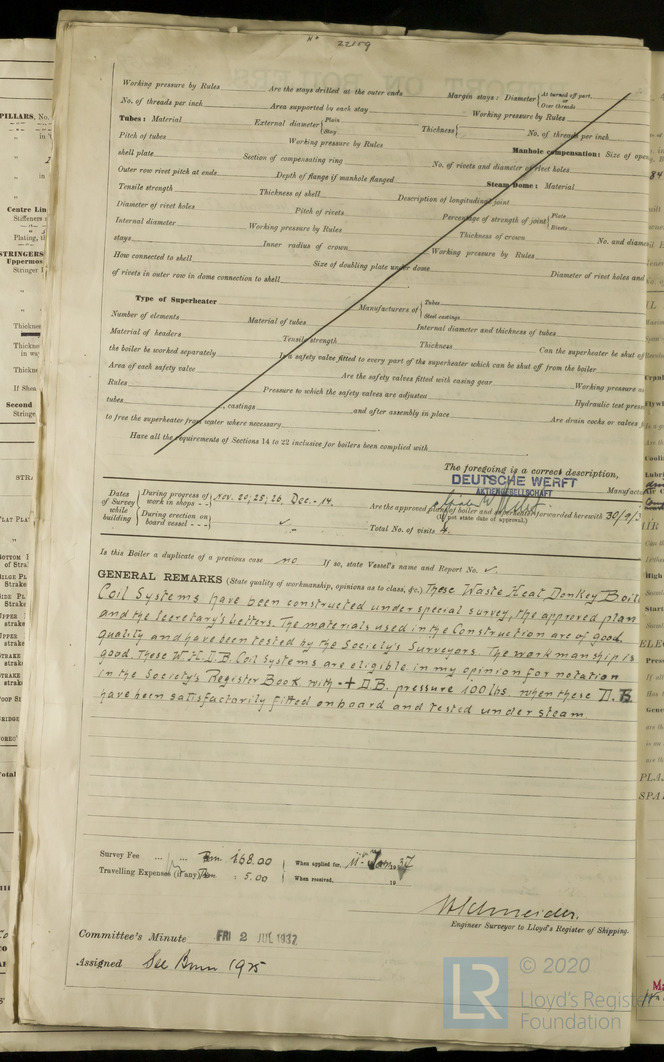 No 22159
Working pressure by Rules Are the stays drilled at the outer ends Margin stays: Diameter { At turned off part, or Over threads
No. of threads per inch Area supported by each stay Working pressure by Rules
Tubes: Material External diameter { Plain Stay Thickness { No. of threads per inch
Pitch of tubes Working pressure by Rules Manhole compensation: Size of open
shell plate Section of compensating ring No. of rivets and diameter of rivet holes
Outer row rivet pitch at ends Depth of flange if manhole flanged Steam Dome: Material
Tensile strength Thickness of shell Description of longitudinal joint
Diameter of rivet holes Pitch of rivets Percentage of strength of joint { Plate Rivets
Internal diameter Working pressure by Rules Thickness of crown No. and diame
stays Inner radius of crown Working pressure by Rules
How connected to shell Size of doubling plate under dome Diameter of rivet holes and
of rivets in outer row in dome connection to shell
Type of Superheater Manufacturers of { Tubes Steel castings
Number of elements Material of tubes Internal diameter and thickness of tubes
Material of headers Tensile strength Thickness Can the superheater be shut of
the boiler be worked separately Is a safety valve fitted to every part of the superheater which can be shut off from the boiler
Area of each safety valve Are the safety valves fitted with easing gear Working pressure as
Rules Pressure to which the safety valves are adjusted Hydraulic test press
tubes , castings and after assembly in place Are drain cocks or valves
to free the superheater from water where necessary
Have all the requirements of Sections 14 to 22 inclusive for boilers been complied with
The foregoing is a correct description,
DEUTSCHE WERFT Manufact
AKTIENGESELLSCHAFT
Dates of Survey while building { During progress of work in shops - - Nov. 20, 25, 26, Dec. - 14. Are the approved plans of boiler and superheater forwarded herewith 30/9/3
During erection on board vessel - - - ✓ (If not state date of approval.)
" Total No. of visits 4.
Is this Boiler a duplicate of a previous case no If so, state Vessel's name and Report No. ✓.
GENERAL REMARKS (State quality of workmanship, opinions as to class, &c.) These Waste Heat, Donkey Boil
Coil Systems have been constructed under special survey, the approved plan
and the Secretary's Letters. The materials used in the Construction are of good
quality and have been tested by the Society's Surveyors. The workmanship is
good. These W.H.D.B. Coil Systems are eligible in my opinion for notation
in the Society's Register Book with - + D.B. pressure 100 lbs. when these D.B.
have been satisfactorily fitted onboard and tested under steam
Survey Fee ... ... Rm. 168.00 When applied for, 11th Jan. 1937
Travelling Expenses (if any) Rm : 5.00 When received, 19
W Schneider.
Engineer Surveyor to Lloyd's Register of Shipping.
Committee's Minute FRI 2 JUL 1937
Assigned See Bmn 1975
LR © 2020
Lloyd's Register
Foundation